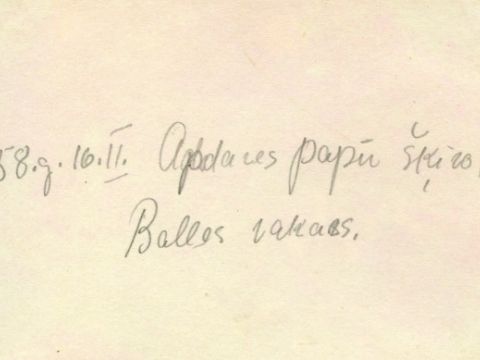 58.g. 16.II. Apdares papīr šķiro
Balles vakars.